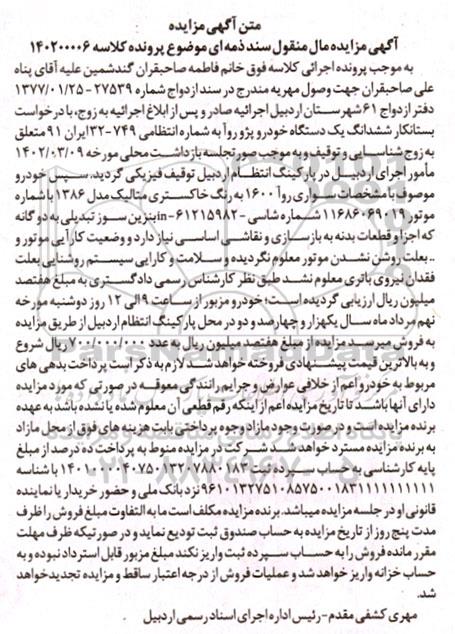 متن آگهی مزایده
آگهی مزایده مال منقول سند ذمه ای موضوع پرونده کلاسه ۱۴۰۲۰۰۰۰۶
به موجب پرونده اجرائی کلاسه فوق خانم فاطمه صاحبقران گندشمین علیه آقای پناه
علی صاحبقران جهت وصول مهریه مندرج در سند ازدواج شماره ۲۷۵۳۹ - ۱۳۷۷/۰۱/۲۵
دفتر ازدواج ۶۱ شهرستان اردبیل اجرائیه صادر و پس از ابلاغ اجرائیه به زوج، با درخواست
بستانکار ششدانگ یک دستگاه خودرو پژو روآ به شماره انتظامی ۷۴۹-۳۲ایران ۹۱ متعلق
به زوج شناسایی و توقیف و به موجب صورتجلسه بازداشت محلی مورخه ۱۴۰۲/۰۳/۰۹
مأمور اجرای اردبیل در پارکینگ انتظام اردبیل توقیف فیزیکی گردید. سپس خودرو
موصوف با مشخصات سواری روآ ۱۶۰۰ به رنگ خاکستری متالیک مدل ۱۳۸۶ با شماره
موتور ۱۱۶۸۶۰۶۹۰۱۹ شماره شاسی - ۶۱۲۱۵۹۸۲-inبنزین سوز تبدیلی به دو گانه
که اجزا و قطعات بدنه به بازسازی و نقاشی اساسی نیاز دارد و وضعیت کارآیی موتور و
.. بعلت روشن نشدن موتور معلوم نگردیده و سلامت و کارایی سیستم روشنایی بعلت
فقدان نیروی باتری معلوم نشد طبق نظر کارشناس رسمی دادگستری به مبلغ هفتصد
میلیون ریال ارزیابی گردیده است؛ خودرو مزبور از ساعت ۹ الی ۱۲ روز دوشنبه مورخه
نهم مرداد ماه سال یکهزار و چهارصد و دو در محل پارکینگ انتظام اردبیل از طریق مزایده
به فروش میرسد مزایده از مبلغ هفتصد میلیون ریال به عدد ۷۰۰/۰۰۰/۰۰۰ ریال شروع
و به بالاترین قیمت پیشنهادی فروخته خواهد شد لازم به ذکر است پرداخت بدهی های
مربوط به خودرو اعم از خلافی عوارض و جرایم رانندگی معوقه در صورتی که مورد مزایده
دارای آنها باشد تا تاریخ مزایده اعم از اینکه رقم قطعی آن معلوم شده یا نشده باشد به عهده
برنده مزایده است و در صورت وجود مازاد وجوه پرداختی بابت هزینه های فوق از محل مازاد
به برنده مزایده مسترد خواهد شد شرکت در مزایده منوط به پرداخت ده درصد از مبلغ
پایه کارشناسی به حساب سپرده ثبت با شناسه
نزد بانک ملی و حضور خریدار یا نماینده
قانونی او در جلسه مزایده میباشد. برنده مزایده مکلف است ما به التفاوت مبلغ فروش را ظرف
مدت پنج روز از تاریخ مزایده به حساب صندوق ثبت تودیع نماید و در صورتیکه ظرف مهلت
مقرر مانده فروش را به حساب سپرده ثبت واریز نکنند مبلغ مزبور قابل استرداد نبوده و به
حساب خزانه واریز خواهد شد و عملیات فروش از درجه اعتبار ساقط و مزایده تجدید خواهد
شد.
مهری کشفی مقدم - رئیس اداره اجرای اسناد رسمی اردبیل
ParsNamadData